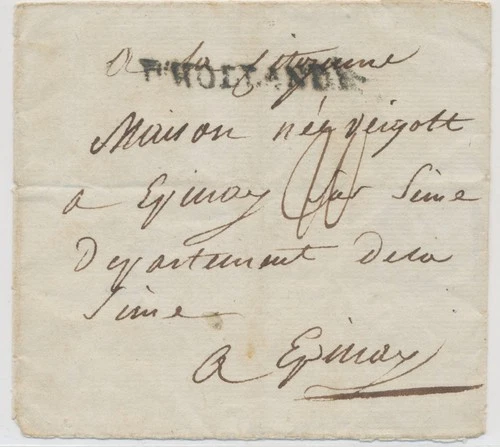 A la Citoyenne
HOLLANDE
Maison née Veigolt
a Epinay sur Seine
Departement de la
Seine
a Epinay